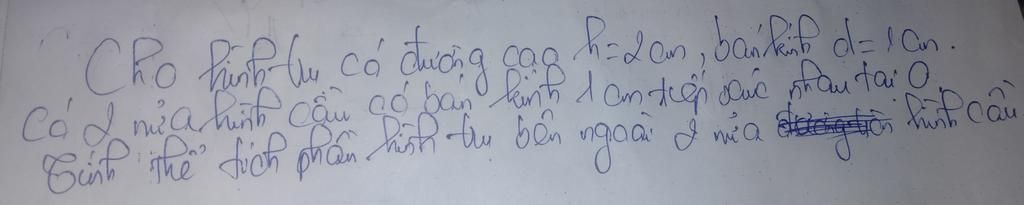 Cho hình trụ có đường cao h=2cm, bán kính d=1cm.
Có 2 nửa hình cầu có bán kính 1cm tiếp xúc nhau tại O
Tính thể tích phần hình trụ bên ngoài 2 nửa hình cầu